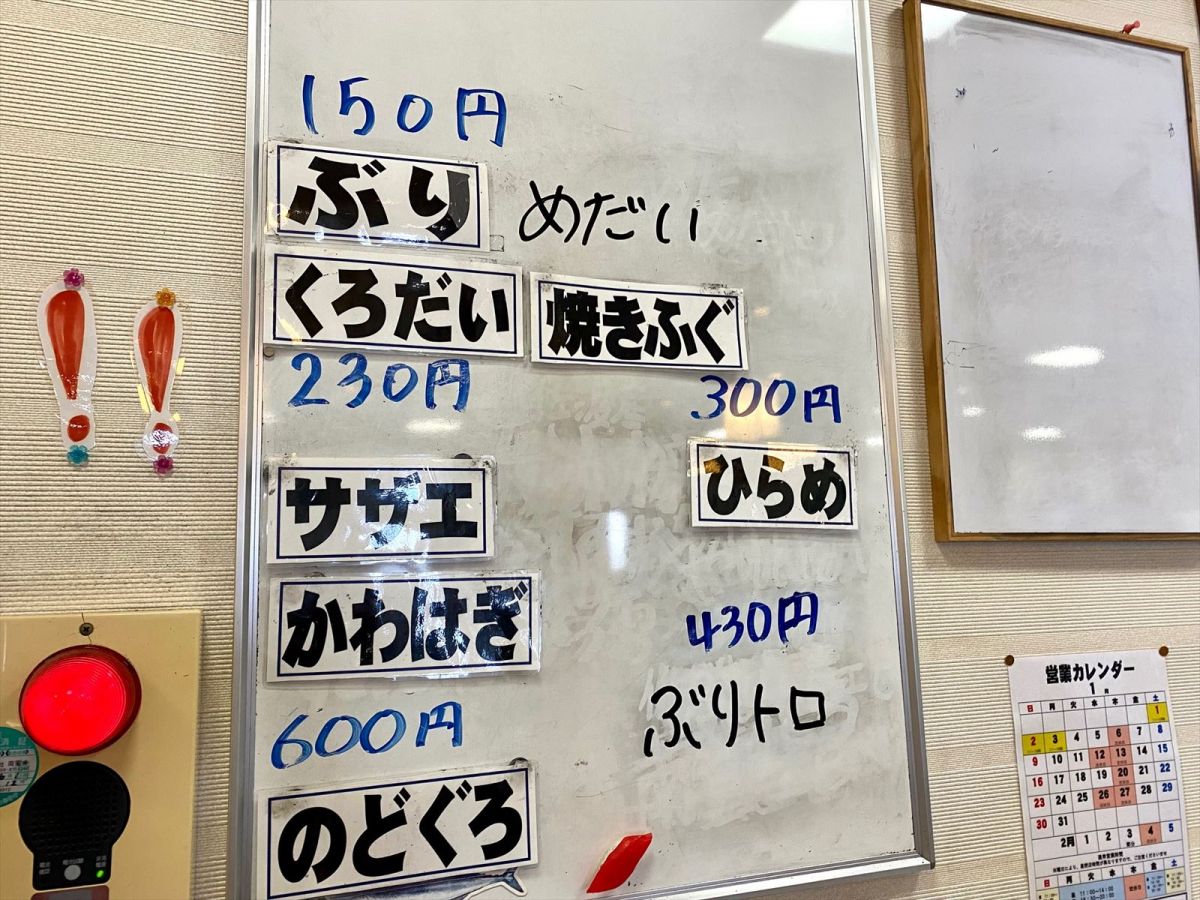 150円
ぶり めだい
くろだい 焼きふぐ
230円
300円
サザエ
ひらめ
かわはぎ
430円
600円
ぶりトロ
のどぐろ
営業カレンダー
1月
日 月 火 水 木 金 土
1
2 3 4 5 6 7 8
9 10 11 12 13 14 15
16 17 18 19 20 21 22
23 24 25 26 27 28 29
30 31
2月 1 2 3 4 5
日 月 火 水 木 金 土